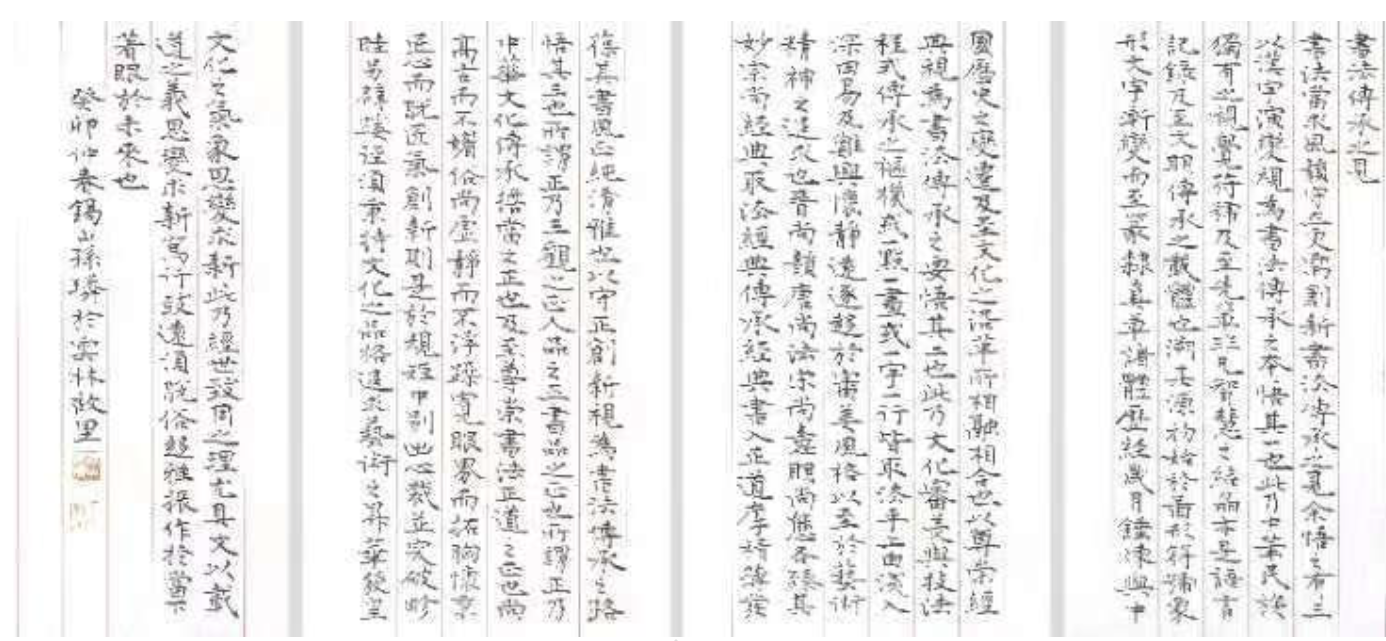 書法傳承之見
書法當承風續字以演創新書法傳承之見余悟之有三
以漢字演變規為書法傳承之本悟其一也此乃中華民族
獨有之視覺符號及至先輩非凡智慧之結晶亦是語言
記錄及至文明傳承之載體也溯其源初始於畜形符號象
形文字漸變而至篆隸真草諸體歷經歲月錘煉與中
國歷史之變遷及至文化之沿革所相融相合也以尊崇經
典視為書法傳承之要悟其二也此乃文化審美與技法
程式傳承之樞機或一點一畫或一字一行皆取法乎上由淺入
深由易及難與懷靜遠逐趨於審美風格以至於藝術
精神之追求也晉尚韻唐尚法宋尚意明尚態各臻其
妙宗尚經典取法經典傳承經典書入正道存精蘊族
葆其書風正純清雅也以守正創新視為書法傳承之路
悟其三也所謂正乃三觀之正人品之正書品之正也所謂正乃
中華文化傳承擔當之正也及至尊崇書法正道之正也尚
高古而不媚俗尚虛靜而不浮躁寬眼界而拓胸懷棄
忌心而脫匠氣創新則是於規矩中別出心裁並突破畛
畦另辟蹊徑須秉持文化之品格追求藝術之昇華發呈
文化之氣象思變求新此乃經世致用之理尤具文以載
道之義思變求新篤行致遠須脫俗趨雅振作於當下
著眼於未來也
癸卯仲春錫山孫璘於雲林故里